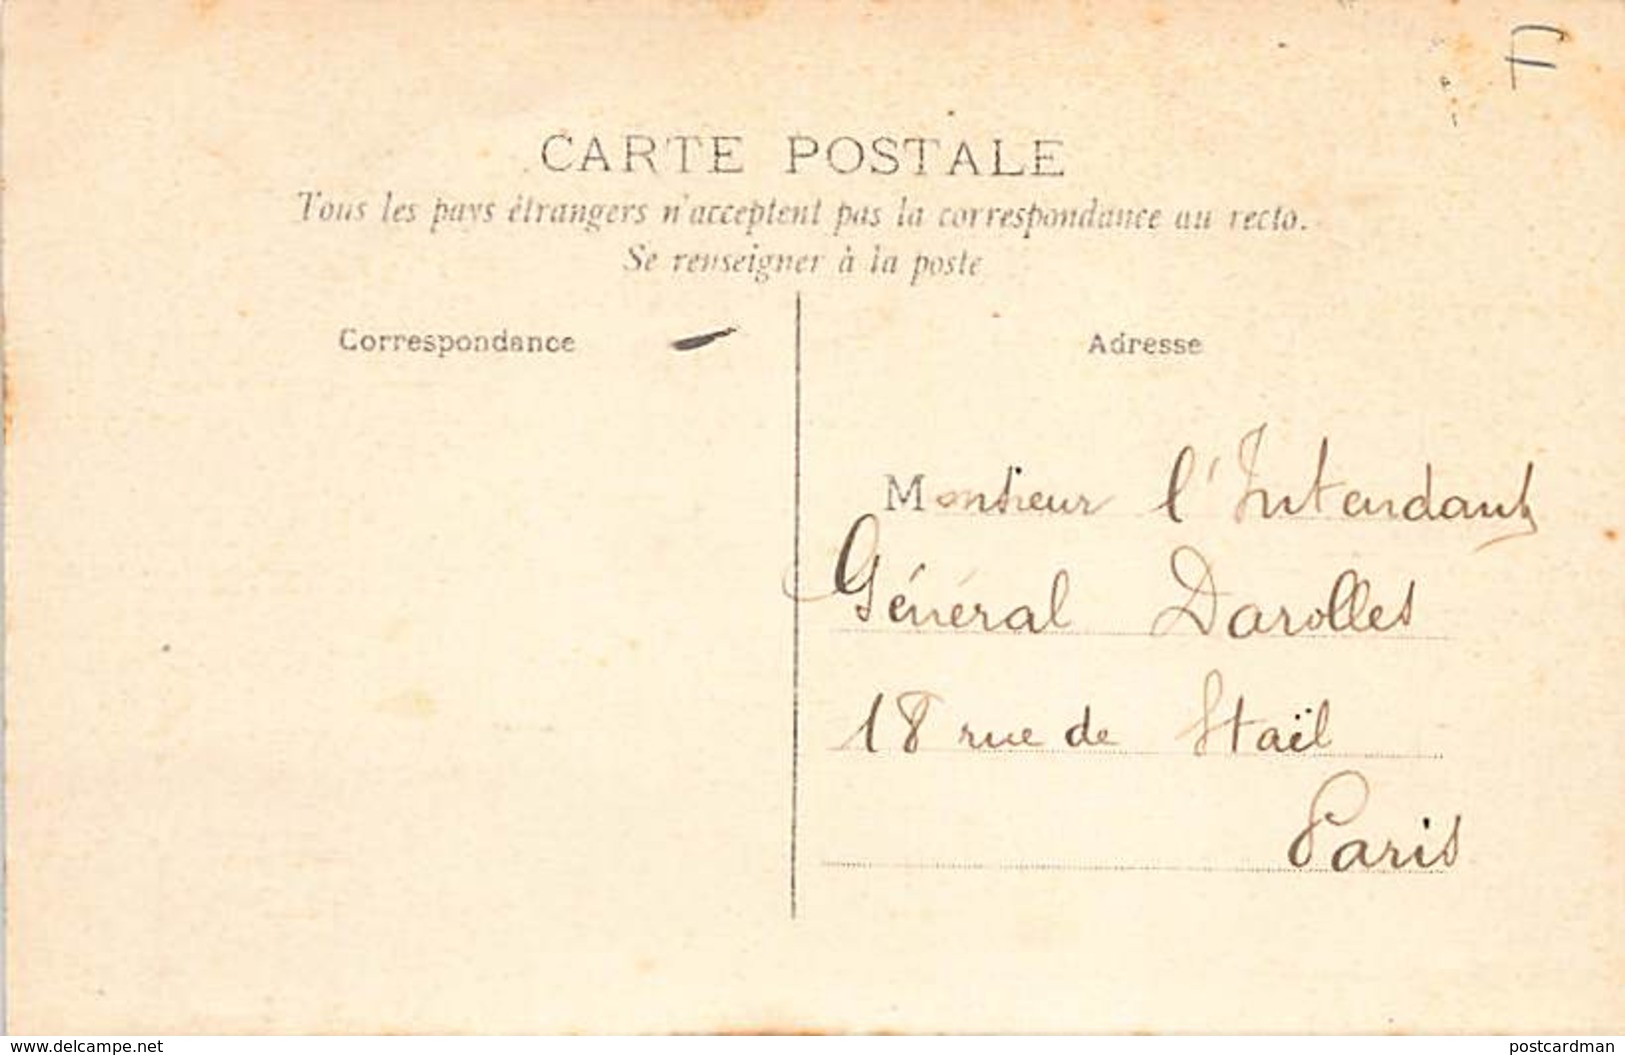 CARTE POSTALE
Tous les pays étrangers n'acceptent pas la correspondance au recto.
Se renseigner à la poste
Correspondance
Adresse
Monsieur l'Intendant
Général Darolles
18 rue de Staël
Paris
www.delcampe.net
postcardman